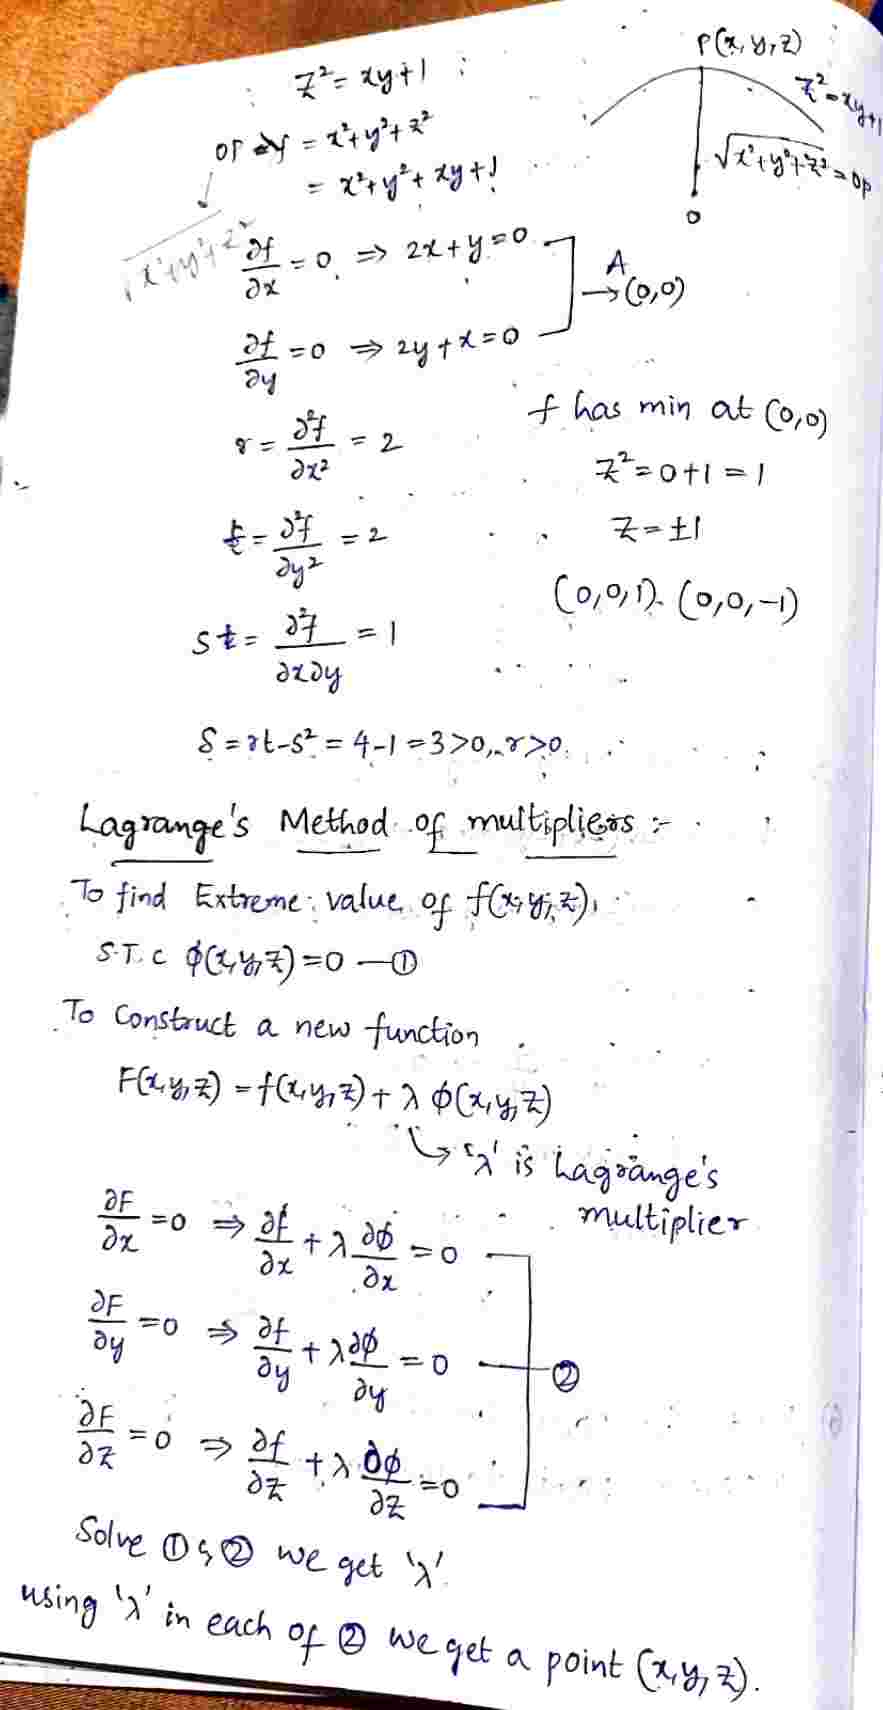 P(x, y, z)
z² = xy+1
z² = xy+1
OP f = x²+y²+z²
√x²+y²+z² = OP
= x²+y²+xy+1
O
√x²+y²+z²
∂f/∂x = 0 ⇒ 2x+y=0
A
→(0,0)
∂f/∂y = 0 ⇒ 2y+x=0
f has min at (0,0)
r = ∂²f/∂x² = 2
z² = 0+1 = 1
t = ∂²f/∂y² = 2
z = ±1
(0,0,1). (0,0,-1)
s = ∂²f/∂x∂y = 1
δ = rt-s² = 4-1 = 3>0, r>0.
Lagrange's Method of multipliers :-
To find Extreme value of f(x, y, z),
S.T.C φ(x,y,z)=0 —①
To Construct a new function
F(x,y,z) = f(x,y,z) + λ φ(x,y,z)
↳ 'λ' is Lagrange's
multiplier
∂F/∂x = 0 ⇒ ∂f/∂x + λ ∂φ/∂x = 0
∂F/∂y = 0 ⇒ ∂f/∂y + λ ∂φ/∂y = 0 —②
∂F/∂z = 0 ⇒ ∂f/∂z + λ ∂φ/∂z = 0
Solve ① & ② we get 'λ'.
using 'λ' in each of ② we get a point (x,y,z).